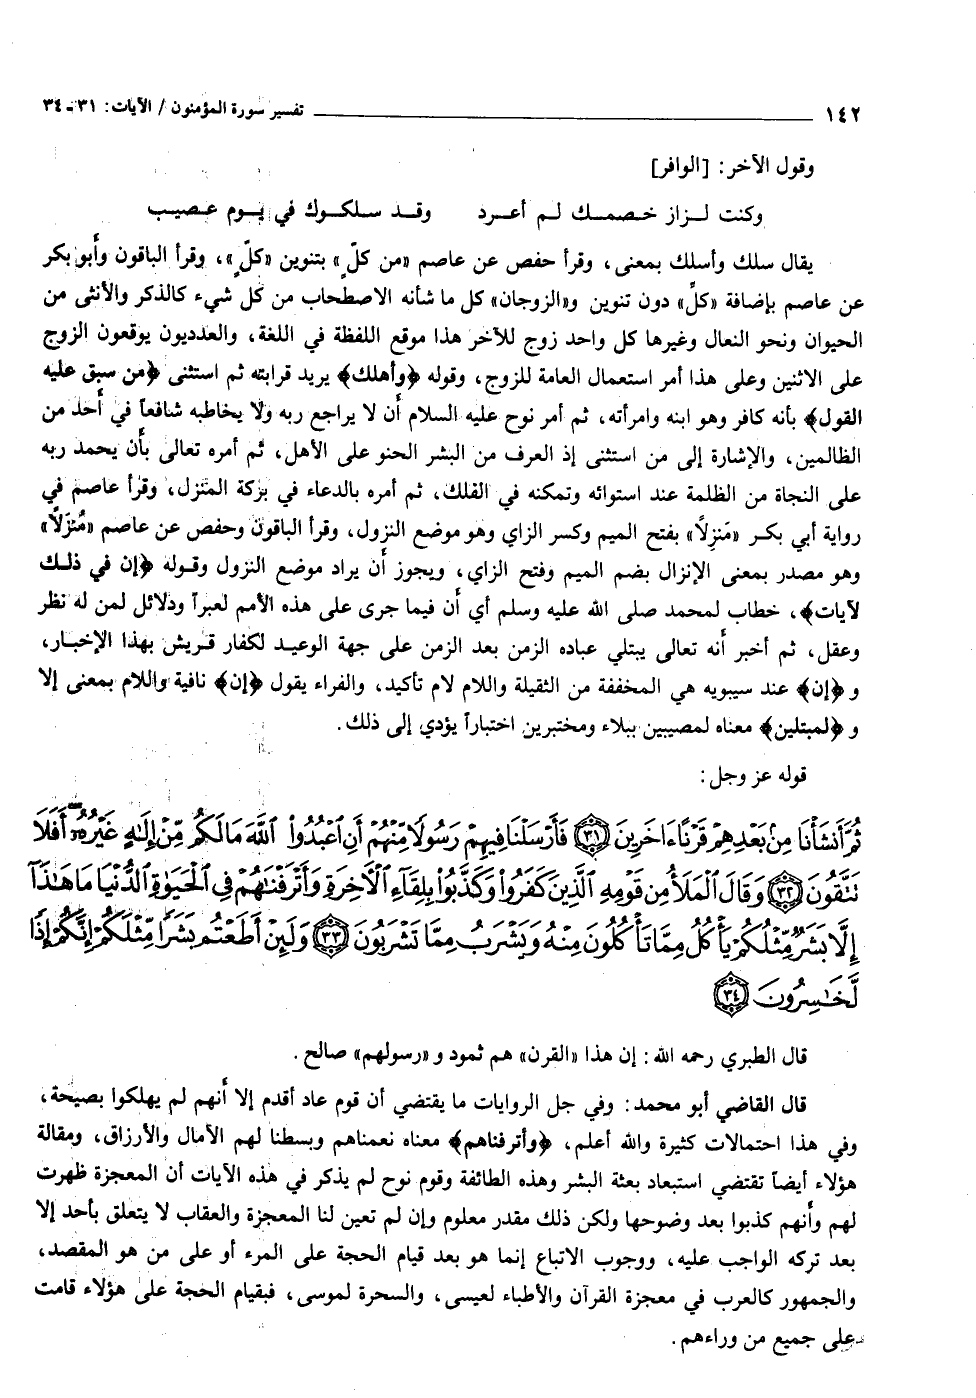 ١٤٢ تفسير سورة المؤمنون / الآيات: ٣١-٣٤
وقول الآخر: [الوافر]
وكنت لـزاز خـصمـك لـم أعـرد وقـد سـلكـوك في يـوم عـصيـب
يقال سلك وأسلك بمعنى، وقرأ حفص عن عاصم «من كلٍّ» بتنوين «كلٍّ»، وقرأ الباقون وأبو بكر
عن عاصم بإضافة «كلِّ» دون تنوين و«الزوجان» كل ما شأنه الاصطحاب من كل شيء كالذكر والأنثى من
الحيوان ونحو النعال وغيرها كل واحد زوج للآخر هذا موقع اللفظة في اللغة، والعدديون يوقعون الزوج
على الاثنين وعلى هذا أمر استعمال العامة للزوج، وقوله ﴿وأهلك﴾ يريد قرابته ثم استثنى ﴿من سبق عليه
القول﴾ بأنه كافر وهو ابنه وامرأته، ثم أمر نوح عليه السلام أن لا يراجع ربه ولا يخاطبه شافعاً في أحد من
الظالمين، والإشارة إلى من استثنى إذ العرف من البشر الحنو على الأهل، ثم أمره تعالى بأن يحمد ربه
على النجاة من الظلمة عند استوائه وتمكنه في الفلك، ثم أمره بالدعاء في بركة المنزل، وقرأ عاصم في
رواية أبي بكـر «مَنزِلاً» بفتح الميم وكسر الزاي وهو موضع النزول، وقرأ الباقون وحفص عن عاصم «مُنْزَلاً»
وهو مصدر بمعنى الإنزال بضم الميم وفتح الزاي، ويجوز أن يراد موضع النزول وقـوله ﴿إن في ذلـك
لآيات﴾، خطاب لمحمد صلى الله عليه وسلم أي أن فيما جرى على هذه الأمم لعبراً ودلائل لمن له نظر
وعقل، ثم أخبر أنه تعالى يبتلي عباده الزمن بعد الزمن على جهة الوعيـد لكفار قـريش بهذا الإخبـار،
و﴿إن﴾ عند سيبويه هي المخففة من الثقيلة واللام لام تأكيد، والفراء يقول ﴿إن﴾ نافية واللام بمعنى إلا
و﴿لمبتلين﴾ معناه لمصيبين ببلاء ومختبرين اختباراً يؤدي إلى ذلك.
قوله عز وجل:
ثُمَّ أَنشَأْنَا مِنۢ بَعْدِهِمْ قَرْنًا ءَاخَرِينَ ٣١ فَأَرْسَلْنَا فِيهِمْ رَسُولًا مِّنْهُمْ أَنِ ٱعْبُدُوا۟ ٱللَّهَ مَا لَكُم مِّنْ إِلَـٰهٍ غَيْرُهُۥٓ أَفَلَا
تَتَّقُونَ ٣٢ وَقَالَ ٱلْمَلَأُ مِن قَوْمِهِ ٱلَّذِينَ كَفَرُوا۟ وَكَذَّبُوا۟ بِلِقَآءِ ٱلْـَٔاخِرَةِ وَأَتْرَفْنَـٰهُمْ فِى ٱلْحَيَوٰةِ ٱلدُّنْيَا مَا هَـٰذَآ
إِلَّا بَشَرٌ مِّثْلُكُمْ يَأْكُلُ مِمَّا تَأْكُلُونَ مِنْهُ وَيَشْرَبُ مِمَّا تَشْرَبُونَ ٣٣ وَلَئِنْ أَطَعْتُم بَشَرًا مِّثْلَكُمْ إِنَّكُمْ إِذًا
لَّخَـٰسِرُونَ ٣٤
قال الطبري رحمه الله: إن هذا «القرن» هم ثمود و«رسولهم» صالح.
قال القاضي أبو محمد: وفي جل الروايات ما يقتضي أن قوم عاد أقدم إلا أنهم لم يهلكوا بصيحة،
وفي هذا احتمالات كثيرة والله أعلم، ﴿وأترفناهم﴾ معناه نعمناهم وبسطنا لهم الآمال والأرزاق، ومقالة
هؤلاء أيضاً تقتضي استبعاد بعثة البشر وهذه الطائفة وقوم نوح لم يذكر في هذه الآيات أن المعجزة ظهرت
لهم وأنهم كذبوا بعد وضوحها ولكن ذلك مقدر معلوم وإن لم تعين لنا المعجزة والعقاب لا يتعلق بأحد إلا
بعد تركه الواجب عليه، ووجوب الاتباع إنما هو بعد قيام الحجة على المرء أو على من هو المقصد،
والجمهور كالعرب في معجزة القرآن والأطباء لعيسى، والسحرة لموسى، فبقيام الحجة على هؤلاء قامت
على جميع من وراءهم.